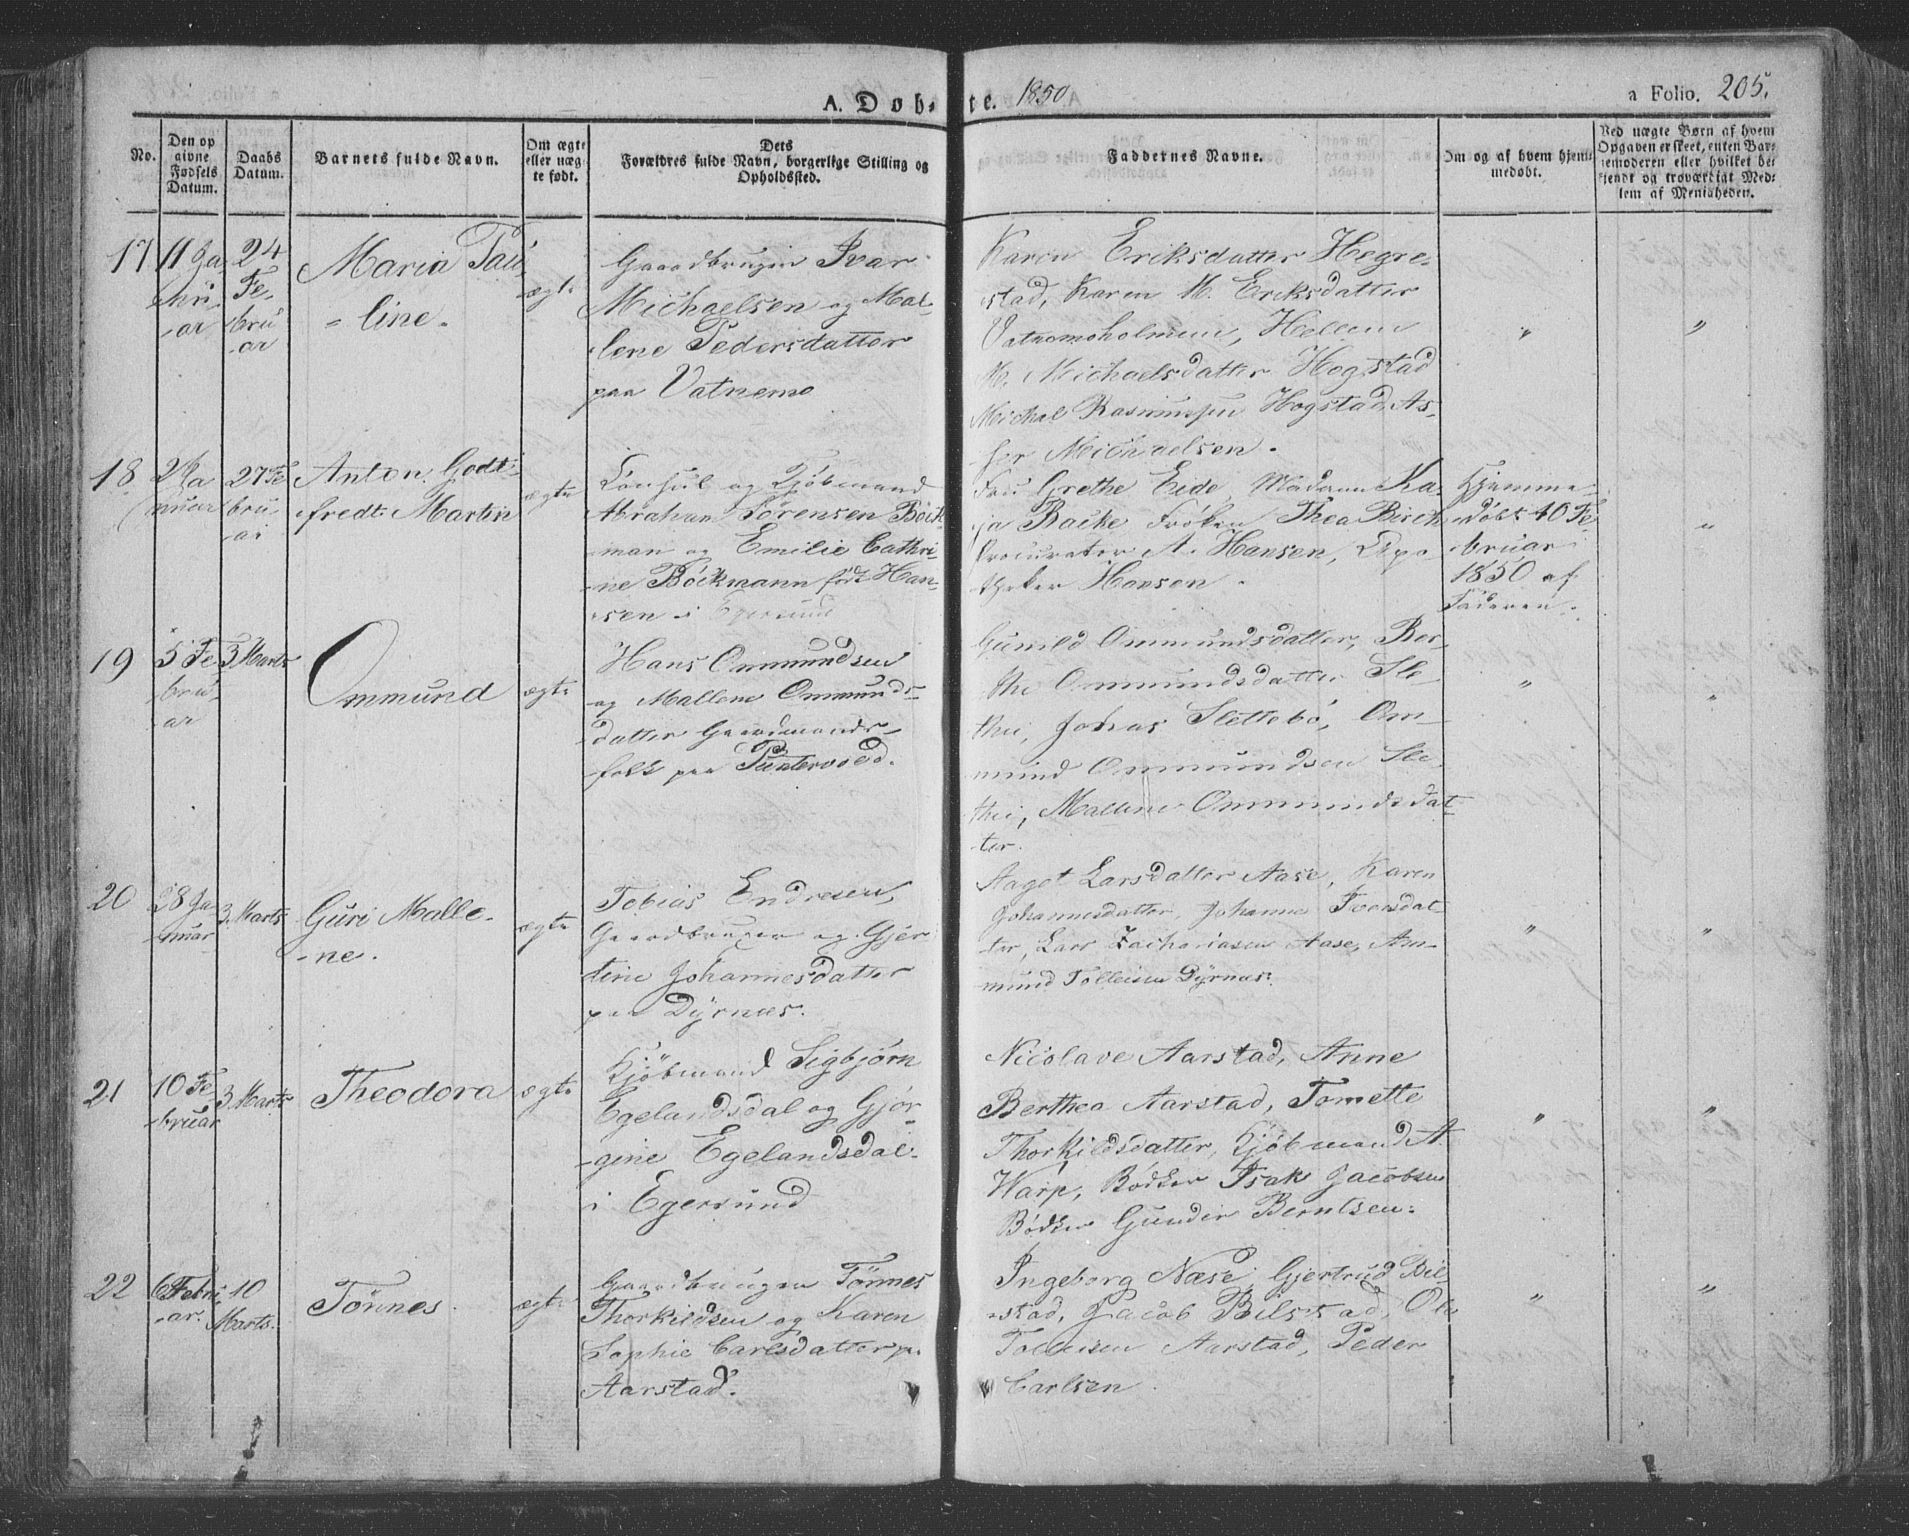 A. Døb-
te. 1850
a Folio. 205.
No.
Den op
givne
Fødsels
Datum.
Daabs
Datum.
Barnets fulde Navn.
Om ægte
eller uæg-
te født.
Dets
Forældres fulde Navn, borgerlige Stilling og
Opholdssted.
Faddernes Navne.
Om og af hvem hjem-
medøbt.
Ved uægte Børn af hvem
Opgaven er skeet, enten Bar-
nemoderen eller hvilket be-
kjendt og troværdigt Med-
lem af Menigheden.
17
11 Ja
nu
ar
24
Fe-
bru
ar
Maria Pau
line.
ægte
Gaardbruger Ivar
Michaelsen og Mal-
lene Pedersdatter
paa Vatnemo
Karen Eriksdatter Hegre-
stad, Karen M. Eriksdatter
Vatnemoholmen, Hellene
M. Michaelsdatter Hogstad
Michal Rasmussen Hogstad, As-
Michaelsen.
"
"
18
Ja
nuar
27 Fe
bru
ar
Anton Godt
fredt Martin
ægte
Consul og Kjøbmand
Abraham Sørensen Bøck
man og Emilie Cathri-
ne Böckmann født Han
sen i Egersund
Fru Grethe Eide, Madam Ka-
ja Backe Frøken Thea Birch
Procurator A. Hansen, Apo
theker Hansen.
Hjemme
døbt 10 Fe
bruar
1850 af
Faderen.
"
19
5 Fe
bru-
ar
3 Marts
Ommund
ægte
Hans Ommundsen
og Mallene Ommunds-
datter Gaardmands-
folk paa Puntervold.
Gunild Ommundsdatter, Ber-
the Ommundsdatter Sle-
thei, Johas Slettebö, Om-
mund Ommundsen Sle-
thei, Mallene Ommundsdat-
ter.
"
"
20
28 Ja
nuar
3 Marts
Guri Malle-
ne.
ægte
Tobias Endresen,
Gaardbruger og Gjer
tine Johannesdatter
paa Dyrnæs.
Aagot Larsdatter Aase, Karen
Johannesdatter, Johanne Iversdat
ter, Lars Zachariasen Aase, Am-
mund Tolleisen Dyrnæs.
"
"
21
10 Fe
bruar
3 Marts
Theodora
ægte
Kjöbmand Sigbjörn
Egelandsdal og Gjør-
gine Egelandsdal
i Egersund
Nicolave Aarstad, Anne
Berthea Aarstad, Tomette
Thorkildsdatter, Kjöbmand A.
Warp, Bödker Isak Jacobsen
Bödker Gunder Berntsen.
"
"
22
6 Febru
ar.
10
Marts.
Tönnes
ægte
Gaardbruger Tönnes
Thorkildsen og Karen
Sophie Carlsdatter p.
Aarstad.
Ingeborg Næse, Gjertrud Bil-
stad, Jacob Bilstad, Ole
Tolleisen Aarstad, Peder
Carlsen.
"
"